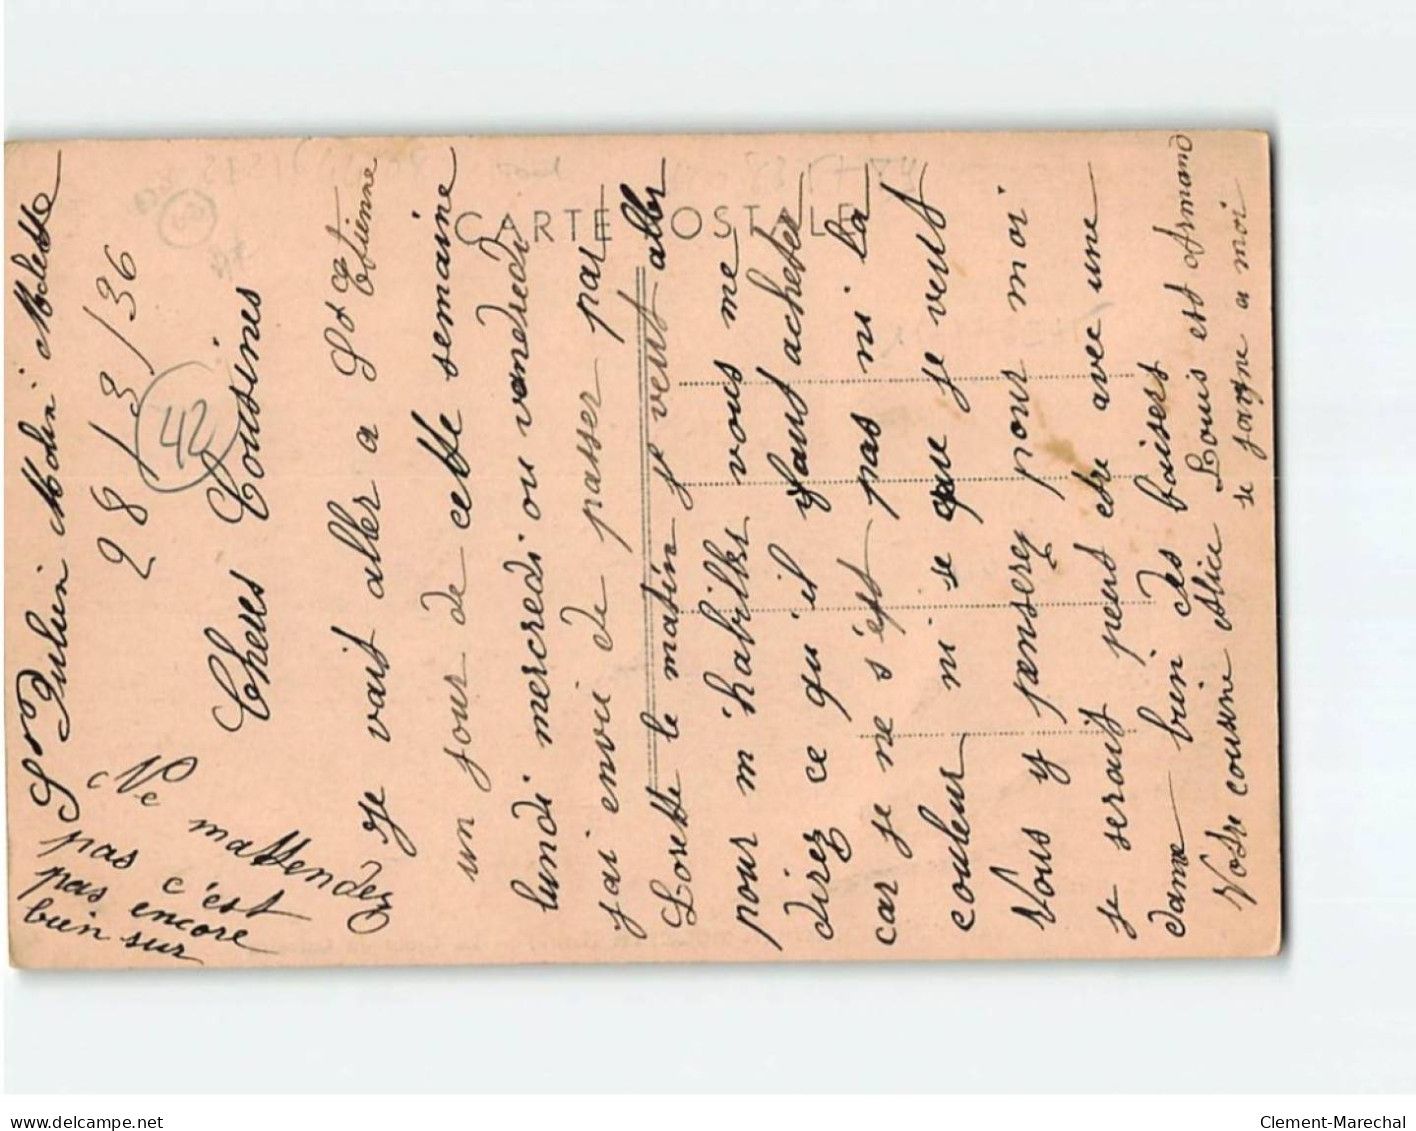 St Julien Molin Molette
28/3/36
42
Cheres Cousines
Je vait aller a St Etienne
un jour de cette semaine
lundi mercredi ou vendredi
j'ai envie de passer par
Lorette le matin je veut aller
pour m'habiller vous me
direz ce qu'il faut acheter
car je ne s'est pas ni la
couleur ni se que je veut
Vous y penserez pour moi
je serait peut etre avec une
dame bien des baisers
Votre cousine Alice Louis est Armand
se joigne a moi
Ne mattendez
pas c'est
pas encore
bien sur
CARTE POSTALE
Clement-Marechal